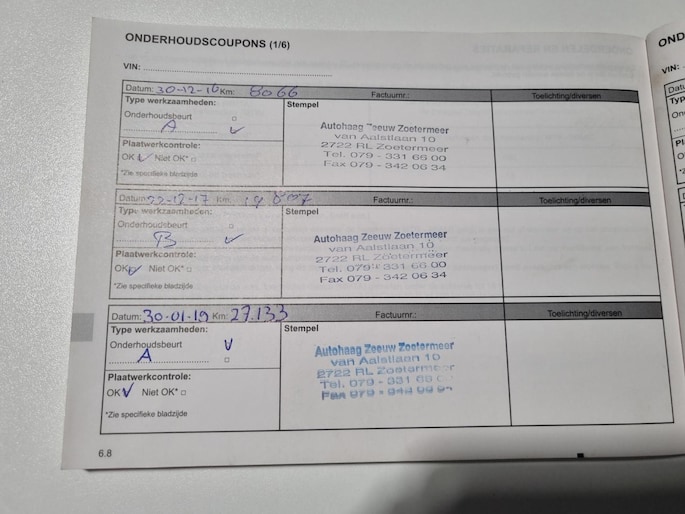 ONDERHOUDSCOUPONS (1/6)
VIN:
Datum: 30-12-16 Km: 8066 Factuurnr.: Toelichting/diversen
Type werkzaamheden: Stempel
Onderhoudsbeurt
A
Autohaag Zeeuw Zoetermeer
van Aalstlaan 10
2722 RL Zoetermeer
Tel. 079 - 331 66 00
Fax 079 - 342 06 34
Plaatwerkcontrole:
OK Niet OK*
*Zie specifieke bladzijde
Datum: 22-12-17 Km: Factuurnr.: Toelichting/diversen
Type werkzaamheden: Stempel
Onderhoudsbeurt
B
Autohaag Zeeuw Zoetermeer
van Aalstlaan 10
2722 RL Zoetermeer
Tel. 079 - 331 66 00
Fax 079 - 342 06 34
Plaatwerkcontrole:
OK Niet OK*
*Zie specifieke bladzijde
Datum: 30-01-19 Km: 27.133 Factuurnr.: Toelichting/diversen
Type werkzaamheden: Stempel
Onderhoudsbeurt V
A
Autohaag Zeeuw Zoetermeer
van Aalstlaan 10
2722 RL Zoetermeer
Tel. 079 - 331 66
Fax 079 -
Plaatwerkcontrole:
OK V Niet OK*
*Zie specifieke bladzijde
6.8
VIN: